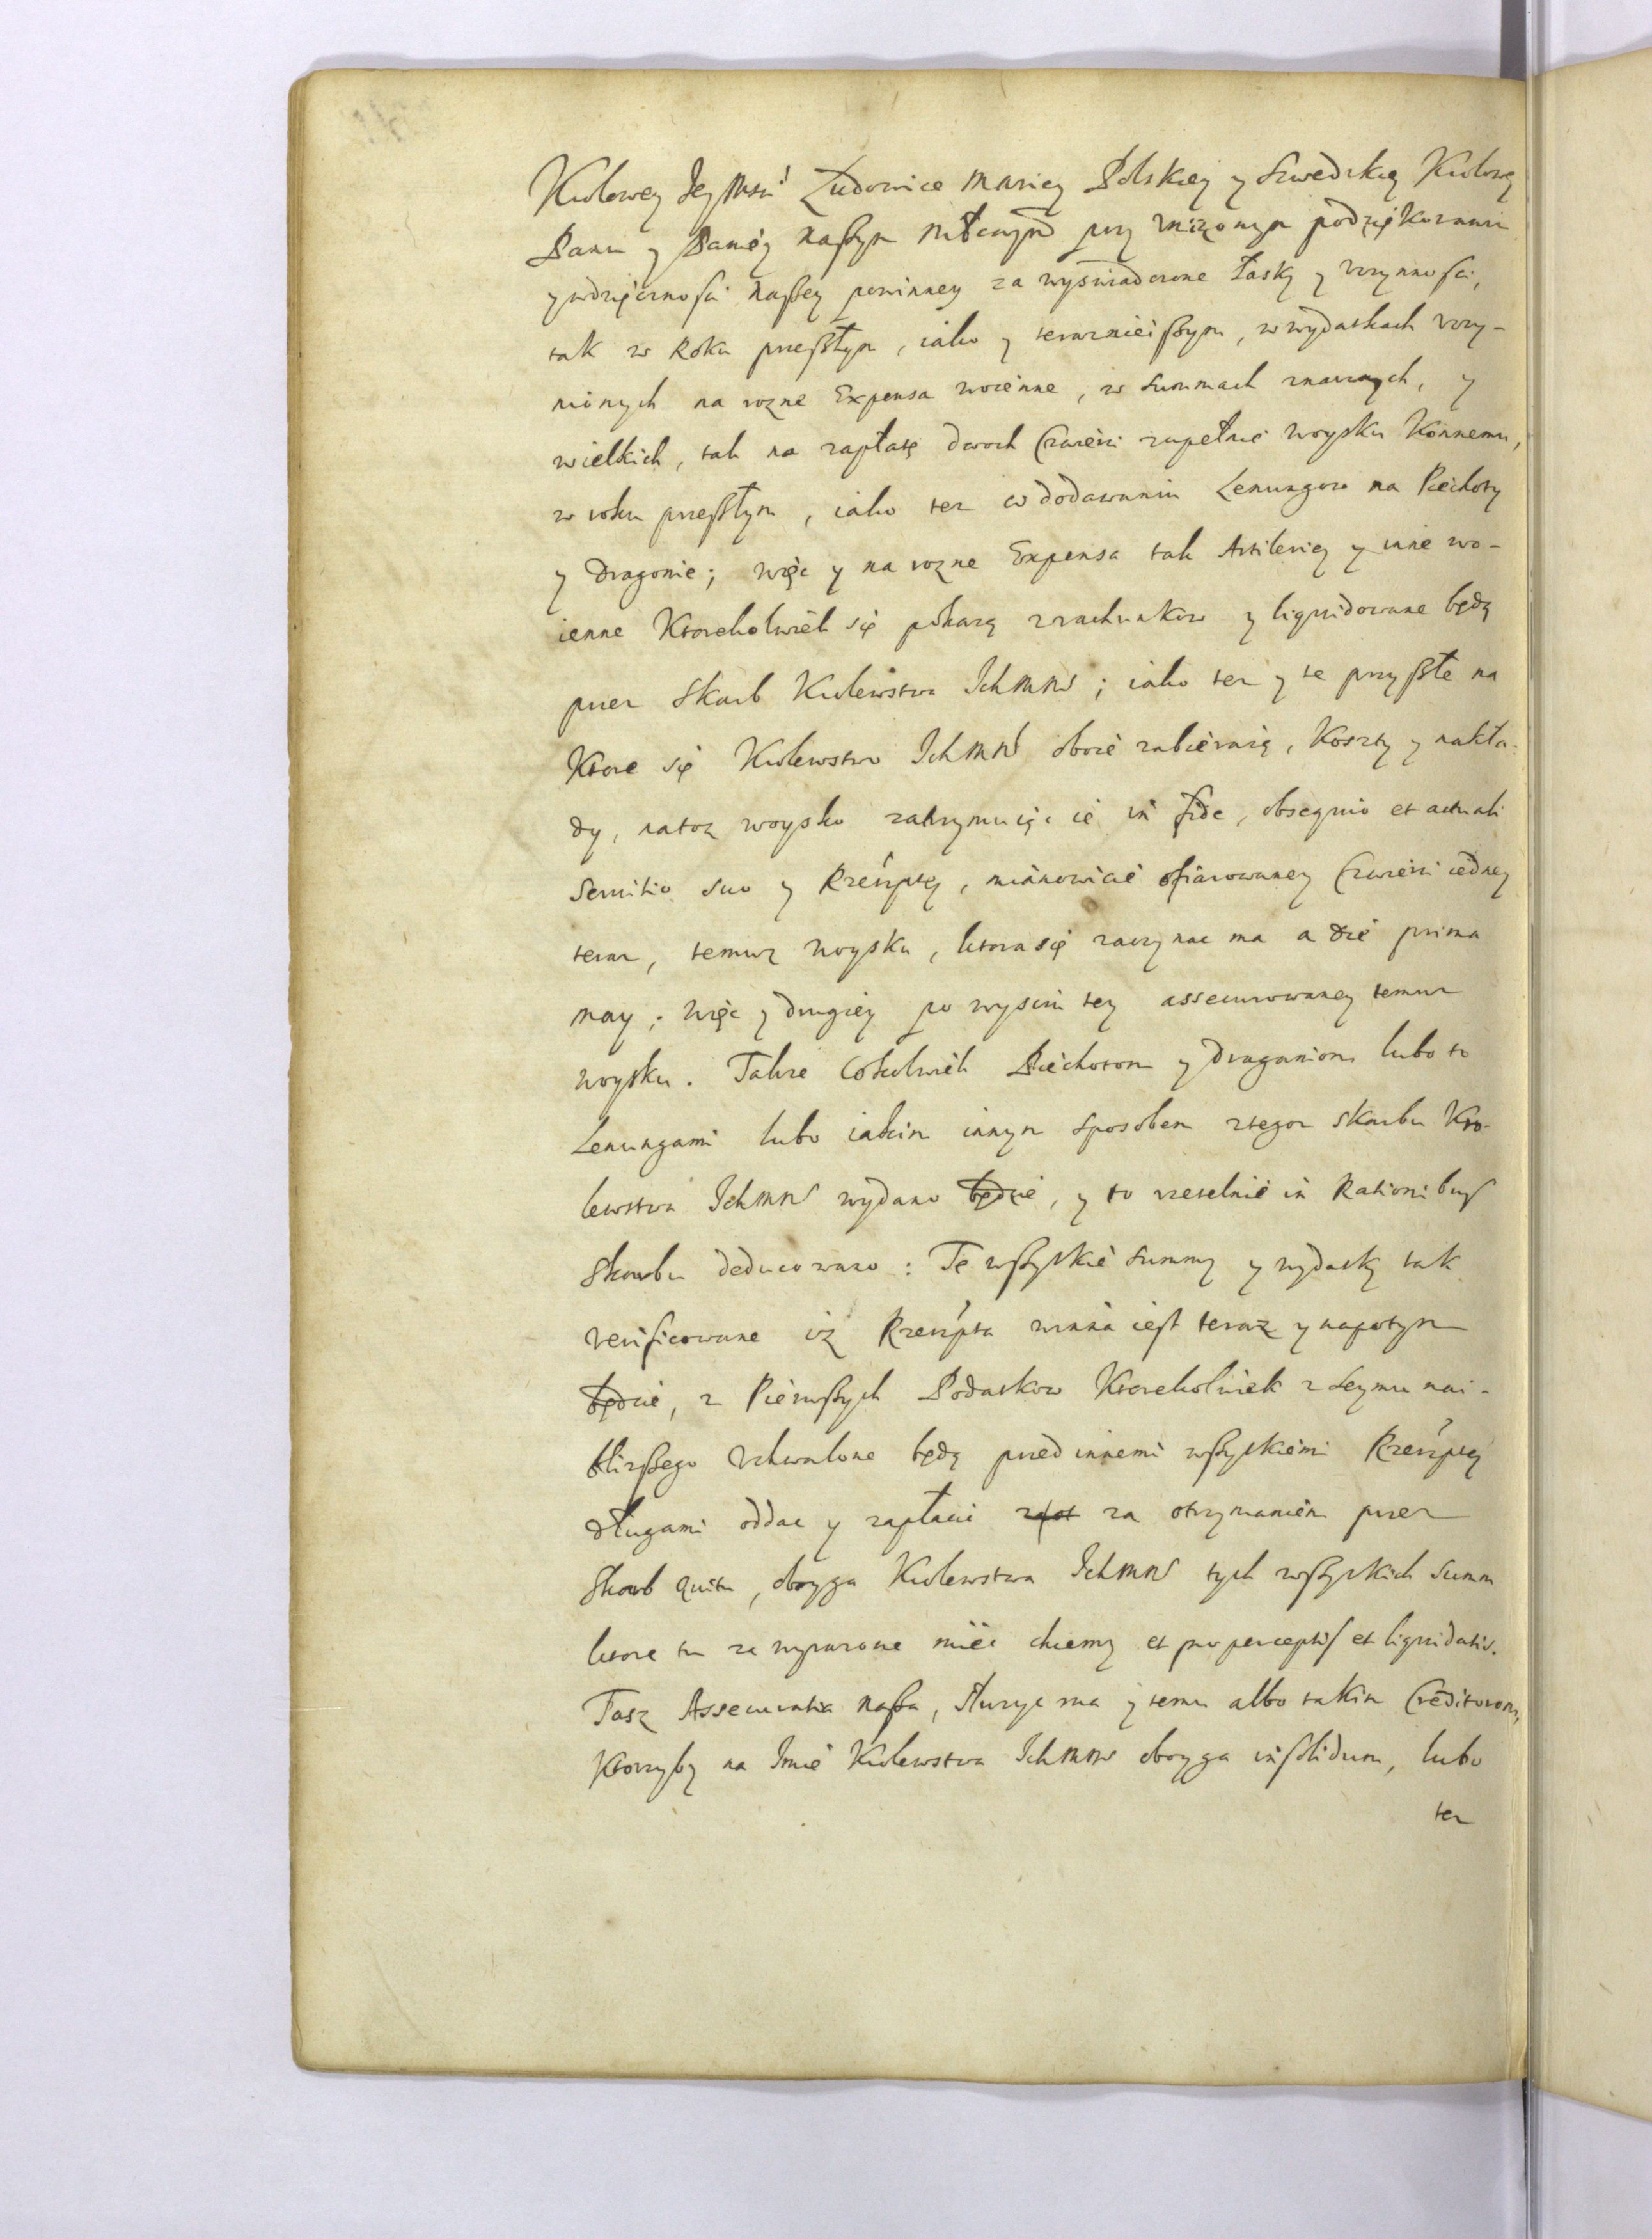 Krolowey Jey Msci Ludowice Mariey Polskiey y Szwedzkiey Krolowey
Panu y Paniey naszym Mtciwym przy Vnizonym podziękowaniu
y wdzięcznosci naszey powinney za wyswiadczone Łaski y vczynnosci,
tak w Roku przeszłym, iako y teraznieiszym, w wydatkach vczy-
nionych na rozne Expensa woienne, w Summach znacznych, y
wielkich, tak na zapłatę dwoch Czwierci zupełnie woysku Konnemu,
w roku przeszłym, iako tez w dodawaniu Lenungow na Piechoty
y Dragonie; więc y na rozne Expensa tak Artileriey y inne wo-
ienne Ktorekolwiek się pokazą z rachunkow y liquidowane będą
przez Skarb Krolewstwa IchMMw; iako tez y te przyszłe na
Ktore się Krolewstwo IchMMw oboie zabieraią, Koszty y nakła-
dy, na toz woysko zatrzymuiąc ie in fide, obsequio et actuali
Seruitio suo y Rzeczyptey, mianowicie ofiarowaney Czwierci iedney
teraz, temuz woysku, ktora się zaczynac ma a die prima
may; więc y drugiey po wysciu tey assecurowaney temuz
woysku. Takze Cokolwiek Piechotom y Draganiom lubo to
Lenungami lubo iakim innym sposobem z tegoz skarbu Kro-
lewstwa IchMMw wydano będzie, y to rzetelnie in Rationibus
Skarbu deducowano: Te wszystkie summy y wydatki tak
verificowane iz Rzeczpta winna iest teraz y napotym
będzie, z Pierwszych Podatkow Ktorekolwiek z Seymu nai-
blizszego Vchwalone będą przed innemi wszystkiemi Rzeczyptey
długami oddac y zapłacic za otrzymaniem przez
Skarb quitu, oboyga Krolewstwa IchMMw tych wszystkich summ
ktore tu za wyrazone miec chcemy et pro perceptis et liquidatis.
Tasz Assecuratia nasza, słuzyc ma y temu albo takim Creditorom,
Ktorzyby na Imie Krolewstwa IchMMw oboyga in solidum, lubo
tez